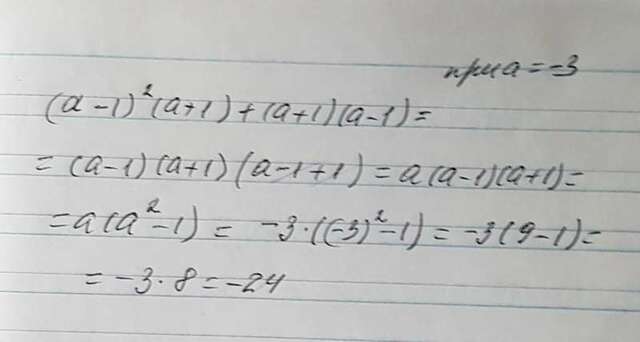 при a = -3
(a-1)²(a+1)+(a+1)(a-1)=
=(a-1)(a+1)(a-1+1)=a(a-1)(a+1)=
=a(a²-1)= -3·((-3)²-1)=-3(9-1)=
=-3·8=-24